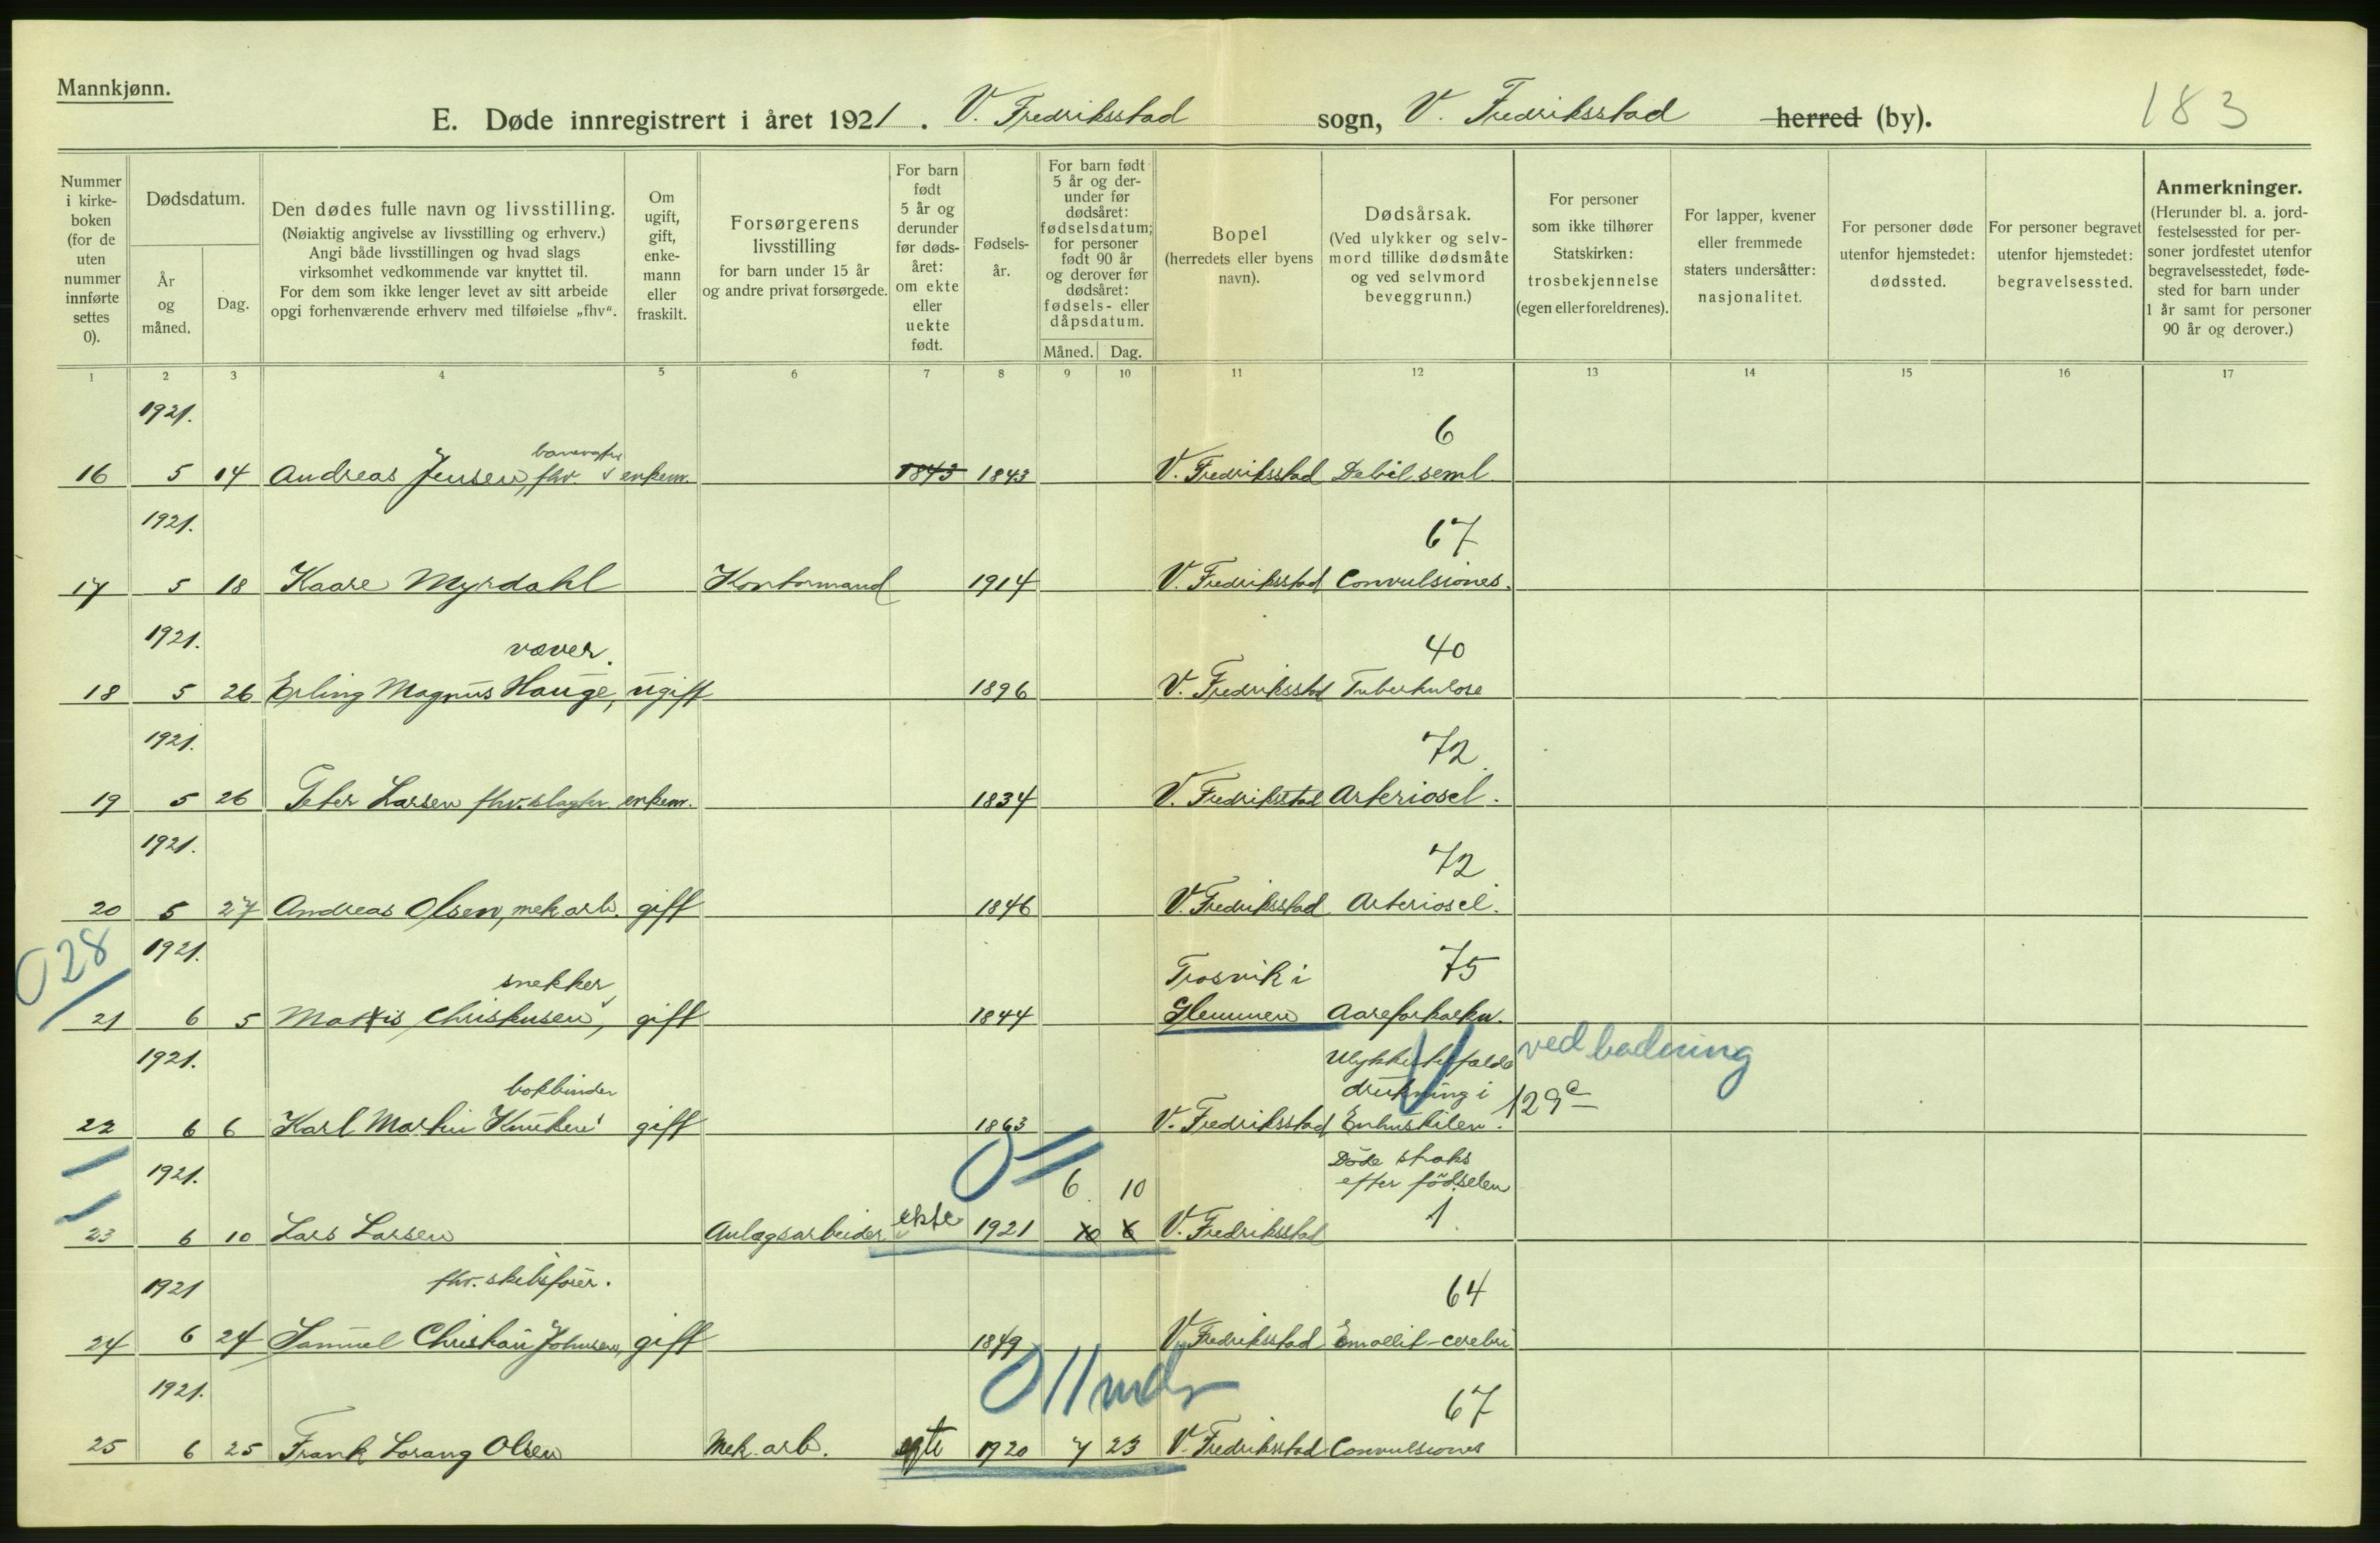 Mannkjønn.
E. Døde innregistrert i året 1921. V. Fredriksstad sogn, V. Fredriksstad herred (by).
183
Nummer i kirkeboken (for de uten nummer innførte settes 0).
Dødsdatum.
År og måned.
Dag.
Den dødes fulle navn og livsstilling.
(Nøiaktig angivelse av livsstilling og erhverv.)
Angi både livsstillingen og hvad slags
virksomhet vedkommende var knyttet til.
For dem som ikke lenger levet av sitt arbeide
opgi forhenværende erhverv med tilføielse „fhv“.
Om ugift, gift, enkemann eller fraskilt.
Forsørgerens
livsstilling
for barn under 15 år
og andre privat forsørgede.
For barn født 5 år og derunder før dødsåret: om ekte eller uekte født.
Fødselsår.
For barn født 5 år og derunder før dødsåret: fødselsdatum; for personer født 90 år og derover før dødsåret: fødsels- eller dåpsdatum.
Måned. Dag.
Bopel
(herredets eller byens
navn).
Dødsårsak.
(Ved ulykker og selvmord tillike dødsmåte
og ved selvmord
beveggrunn.)
For personer
som ikke tilhører
Statskirken:
trosbekjennelse
(egen eller foreldrenes).
For lapper, kvener
eller fremmede
staters undersåtter:
nasjonalitet.
For personer døde
utenfor hjemstedet:
dødssted.
For personer begravet
utenfor hjemstedet:
begravelsessted.
Anmerkninger.
(Herunder bl. a. jordfestelsessted for personer jordfestet utenfor
begravelsesstedet, fødested for barn under
1 år samt for personer
90 år og derover.)
1 2 3 4 5 6 7 8 9 10 11 12 13 14 15 16 17
1921. 6
16 5 14 Andreas Jensen, fhv. banevogter enkem. 1843 1843 V. Fredriksstad Debil. senil.
1921. 67
17 5 18 Kaare Myrdahl Kontormand 1914 V. Fredriksstad Convulsiones.
1921. væver. 40
18 5 26 Erling Magnus Hauge, ugift 1896 V. Fredriksstad Tuberkulose
1921. 72
19 5 26 Peter Larsen fhv. slagter enkem. 1834 V. Fredriksstad Arterioscl.
1921. 72
20 5 27 Andreas Olsen, mek. arb. gift 1846 V. Fredriksstad Arterioscl.
028
1921. snekker Trosvik i 75
21 6 5 Mattis Christensen, gift 1844 Glemmen Aareforkalkn.
1921. bokbinder Ulykkestilfælde drukning i ved badning
22 6 6 Karl Martin gift 1863 V. Fredriksstad 129c
1921. 0 6 10 Døde straks efter fødselen
23 6 10 Lars Larsen Anlægsarbeider ekte 1921 10 6 V. Fredriksstad 1
1921 fhv. skibsfører. 64
24 6 24 Samuel Christian Johnsen, gift 1849 V. Fredriksstad Emollit-cerebri
1921. 0 11 mdr 67
25 6 25 Frank Lorang Olsen Mek. arb. egte 1920 7 23 V. Fredriksstad Convulsiones